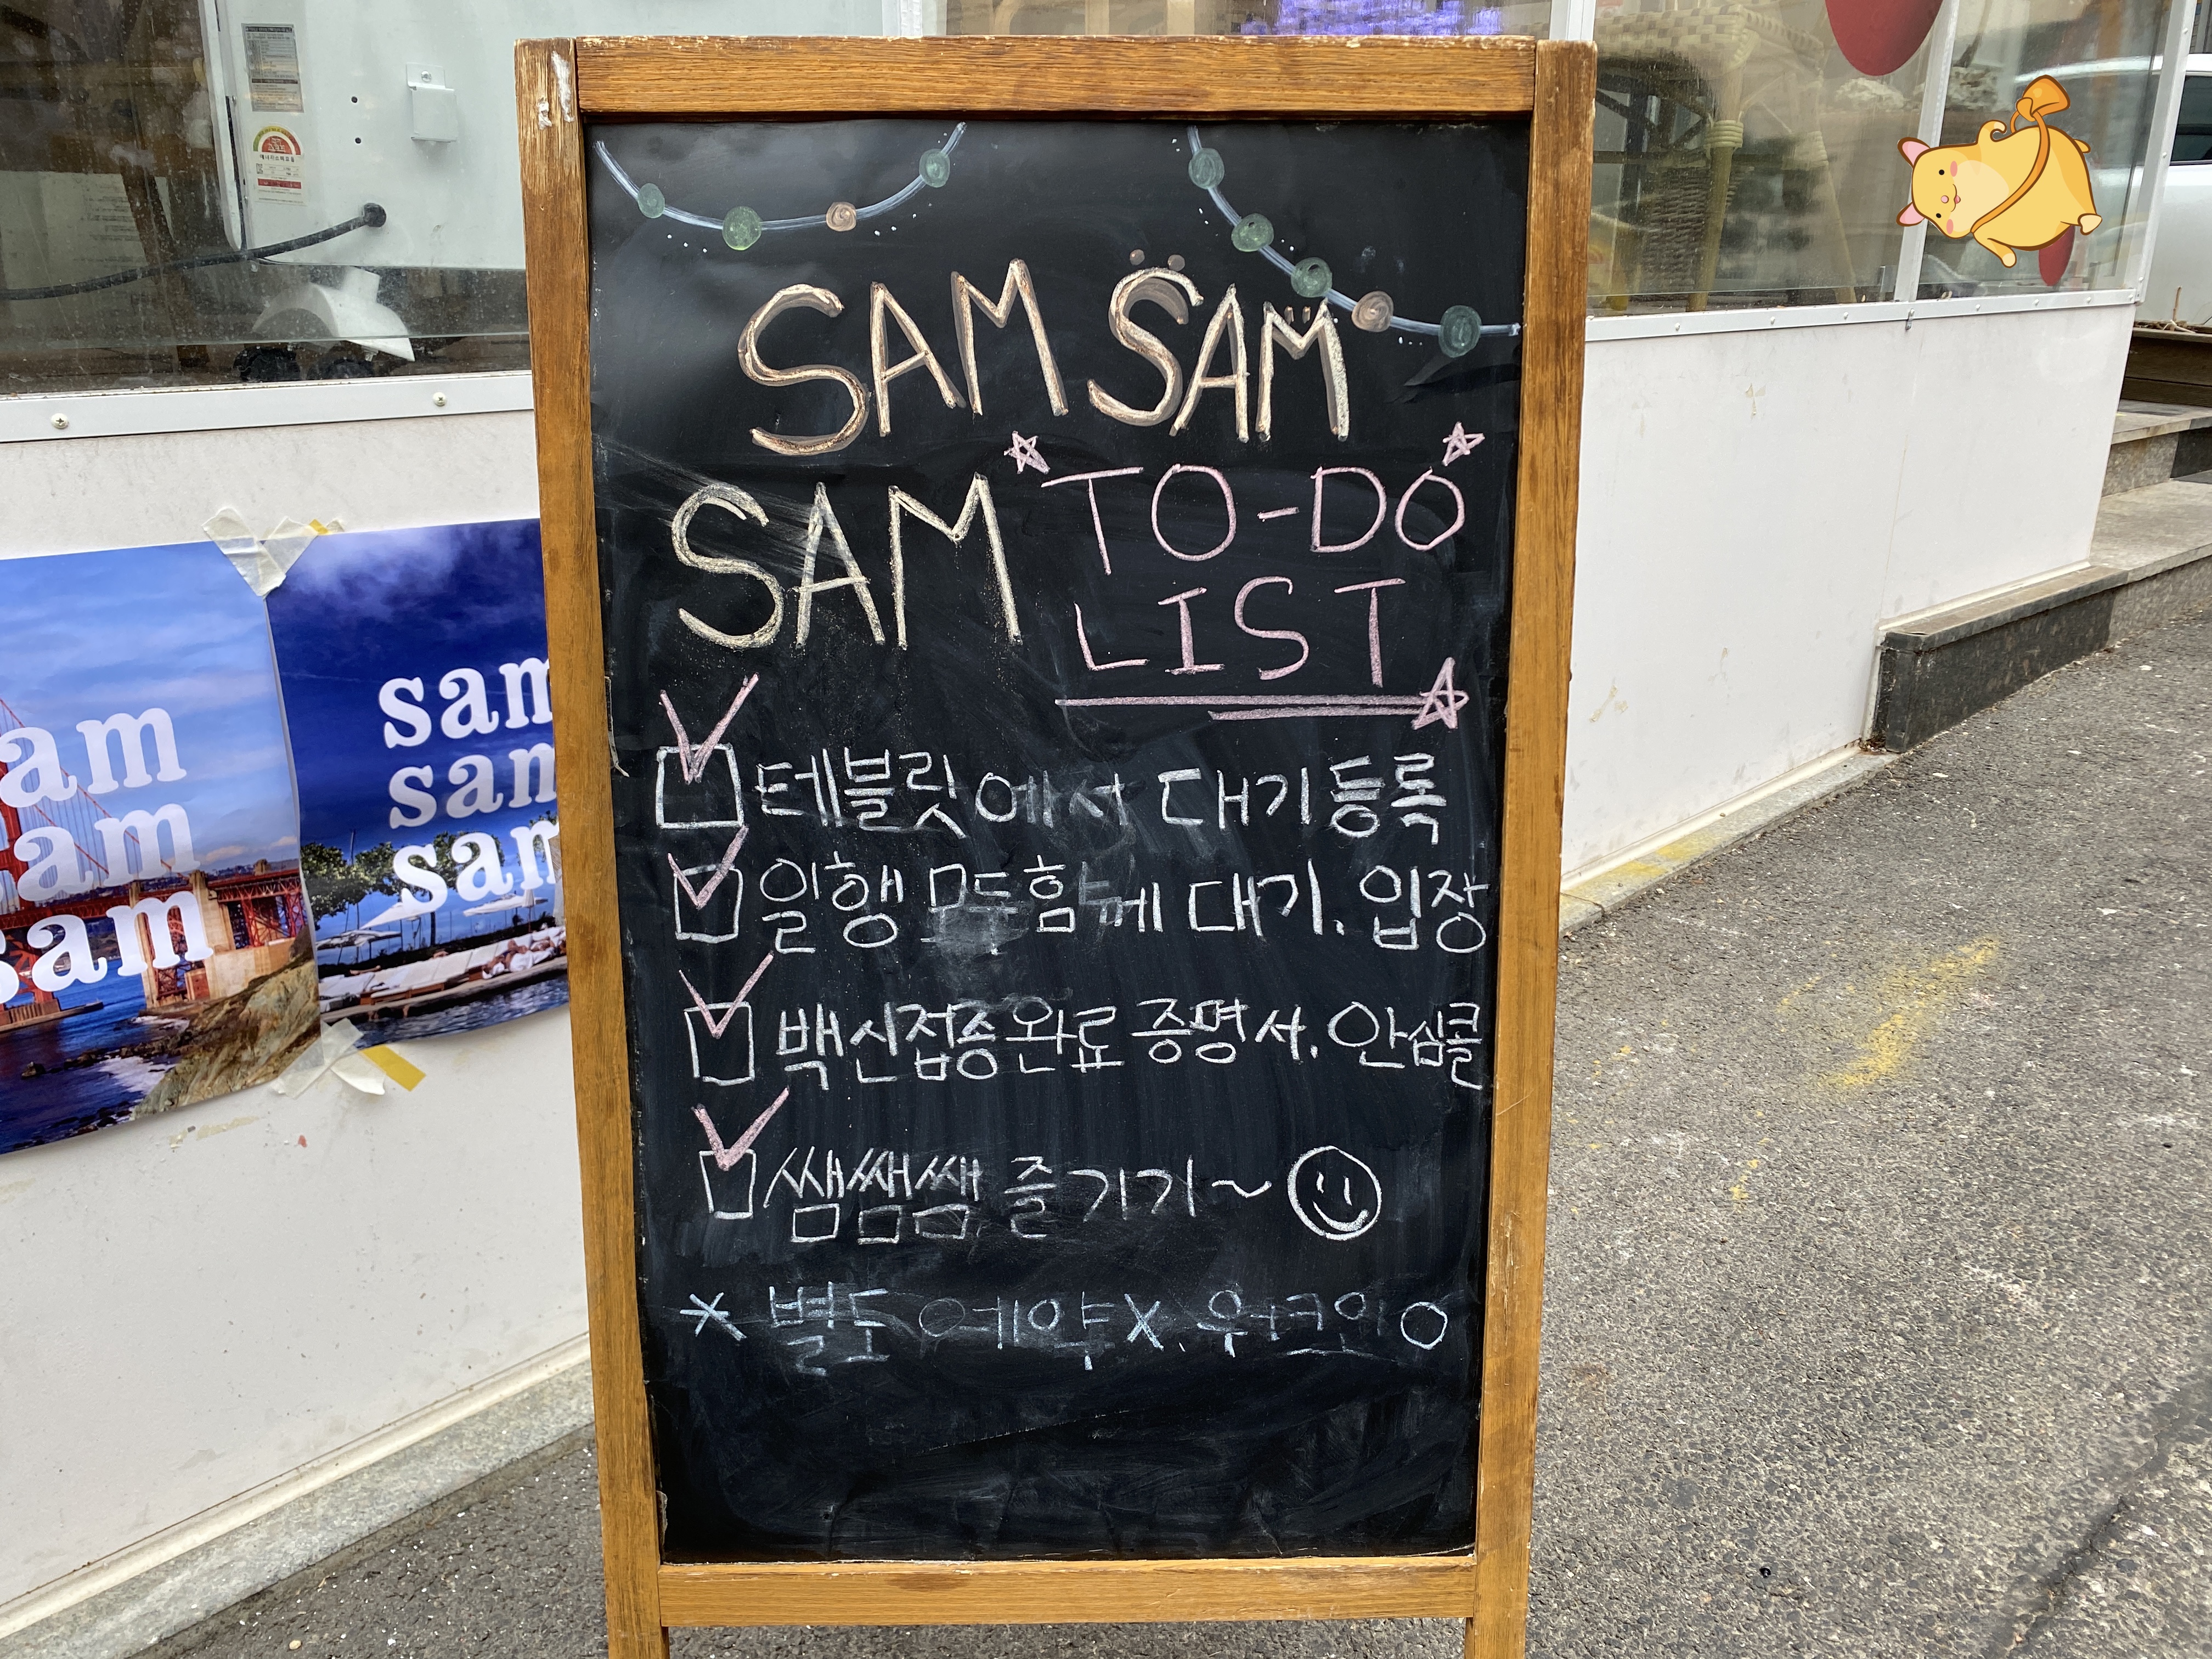 SAM SAM
SAM TO-DO
LIST
테블릿에서 대기등록
일행 모두 함께 대기. 입장
백신접종완료 증명서. 안심콜
쌤쌤쌤 즐기기~
* 별도 예약X. 워크인 O
sam
sam
sam
sam
sam
sam